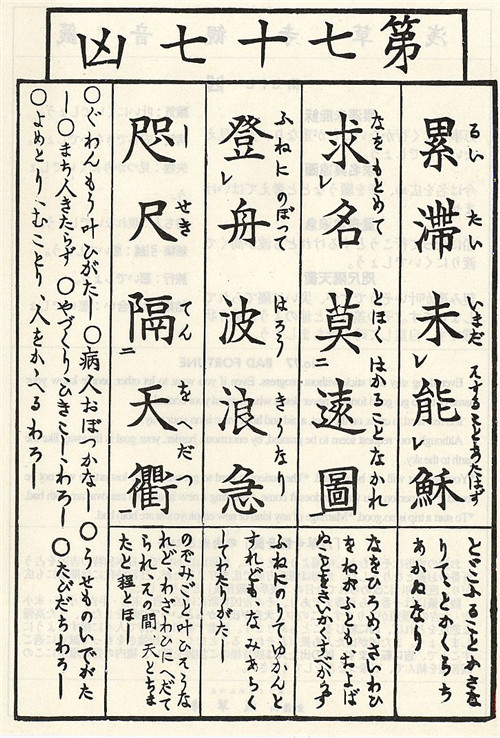 第七十七凶
累滯未レ能レ穌
るい たい いまだ スすることあたはず
とどこふることかさなりてとかくらちあかぬなり
求名莫二遠圖
なをもとめて とほくはかることなかれ
なをひろめ、さいわひをねがふともおよばぬ
登レ舟波浪急
ふねにのぼつて はらうきうなり
ふねにのりてゆかんとすれどもなみあらくしてわたりがたし
咫尺隔二天衢
しせきてんをへだつ
のぞみごと叶ひえうなれど、わざわひにへだてられ、その間天とちまたと程とほし
○ぐわんもう叶ひがたし ○病人おぼつかなし ○うせものいでがたし ○まち人きたらず ○やづくりひきこしわろし ○たびだちわろし
○よめとりむことり人をかゝへるわろし